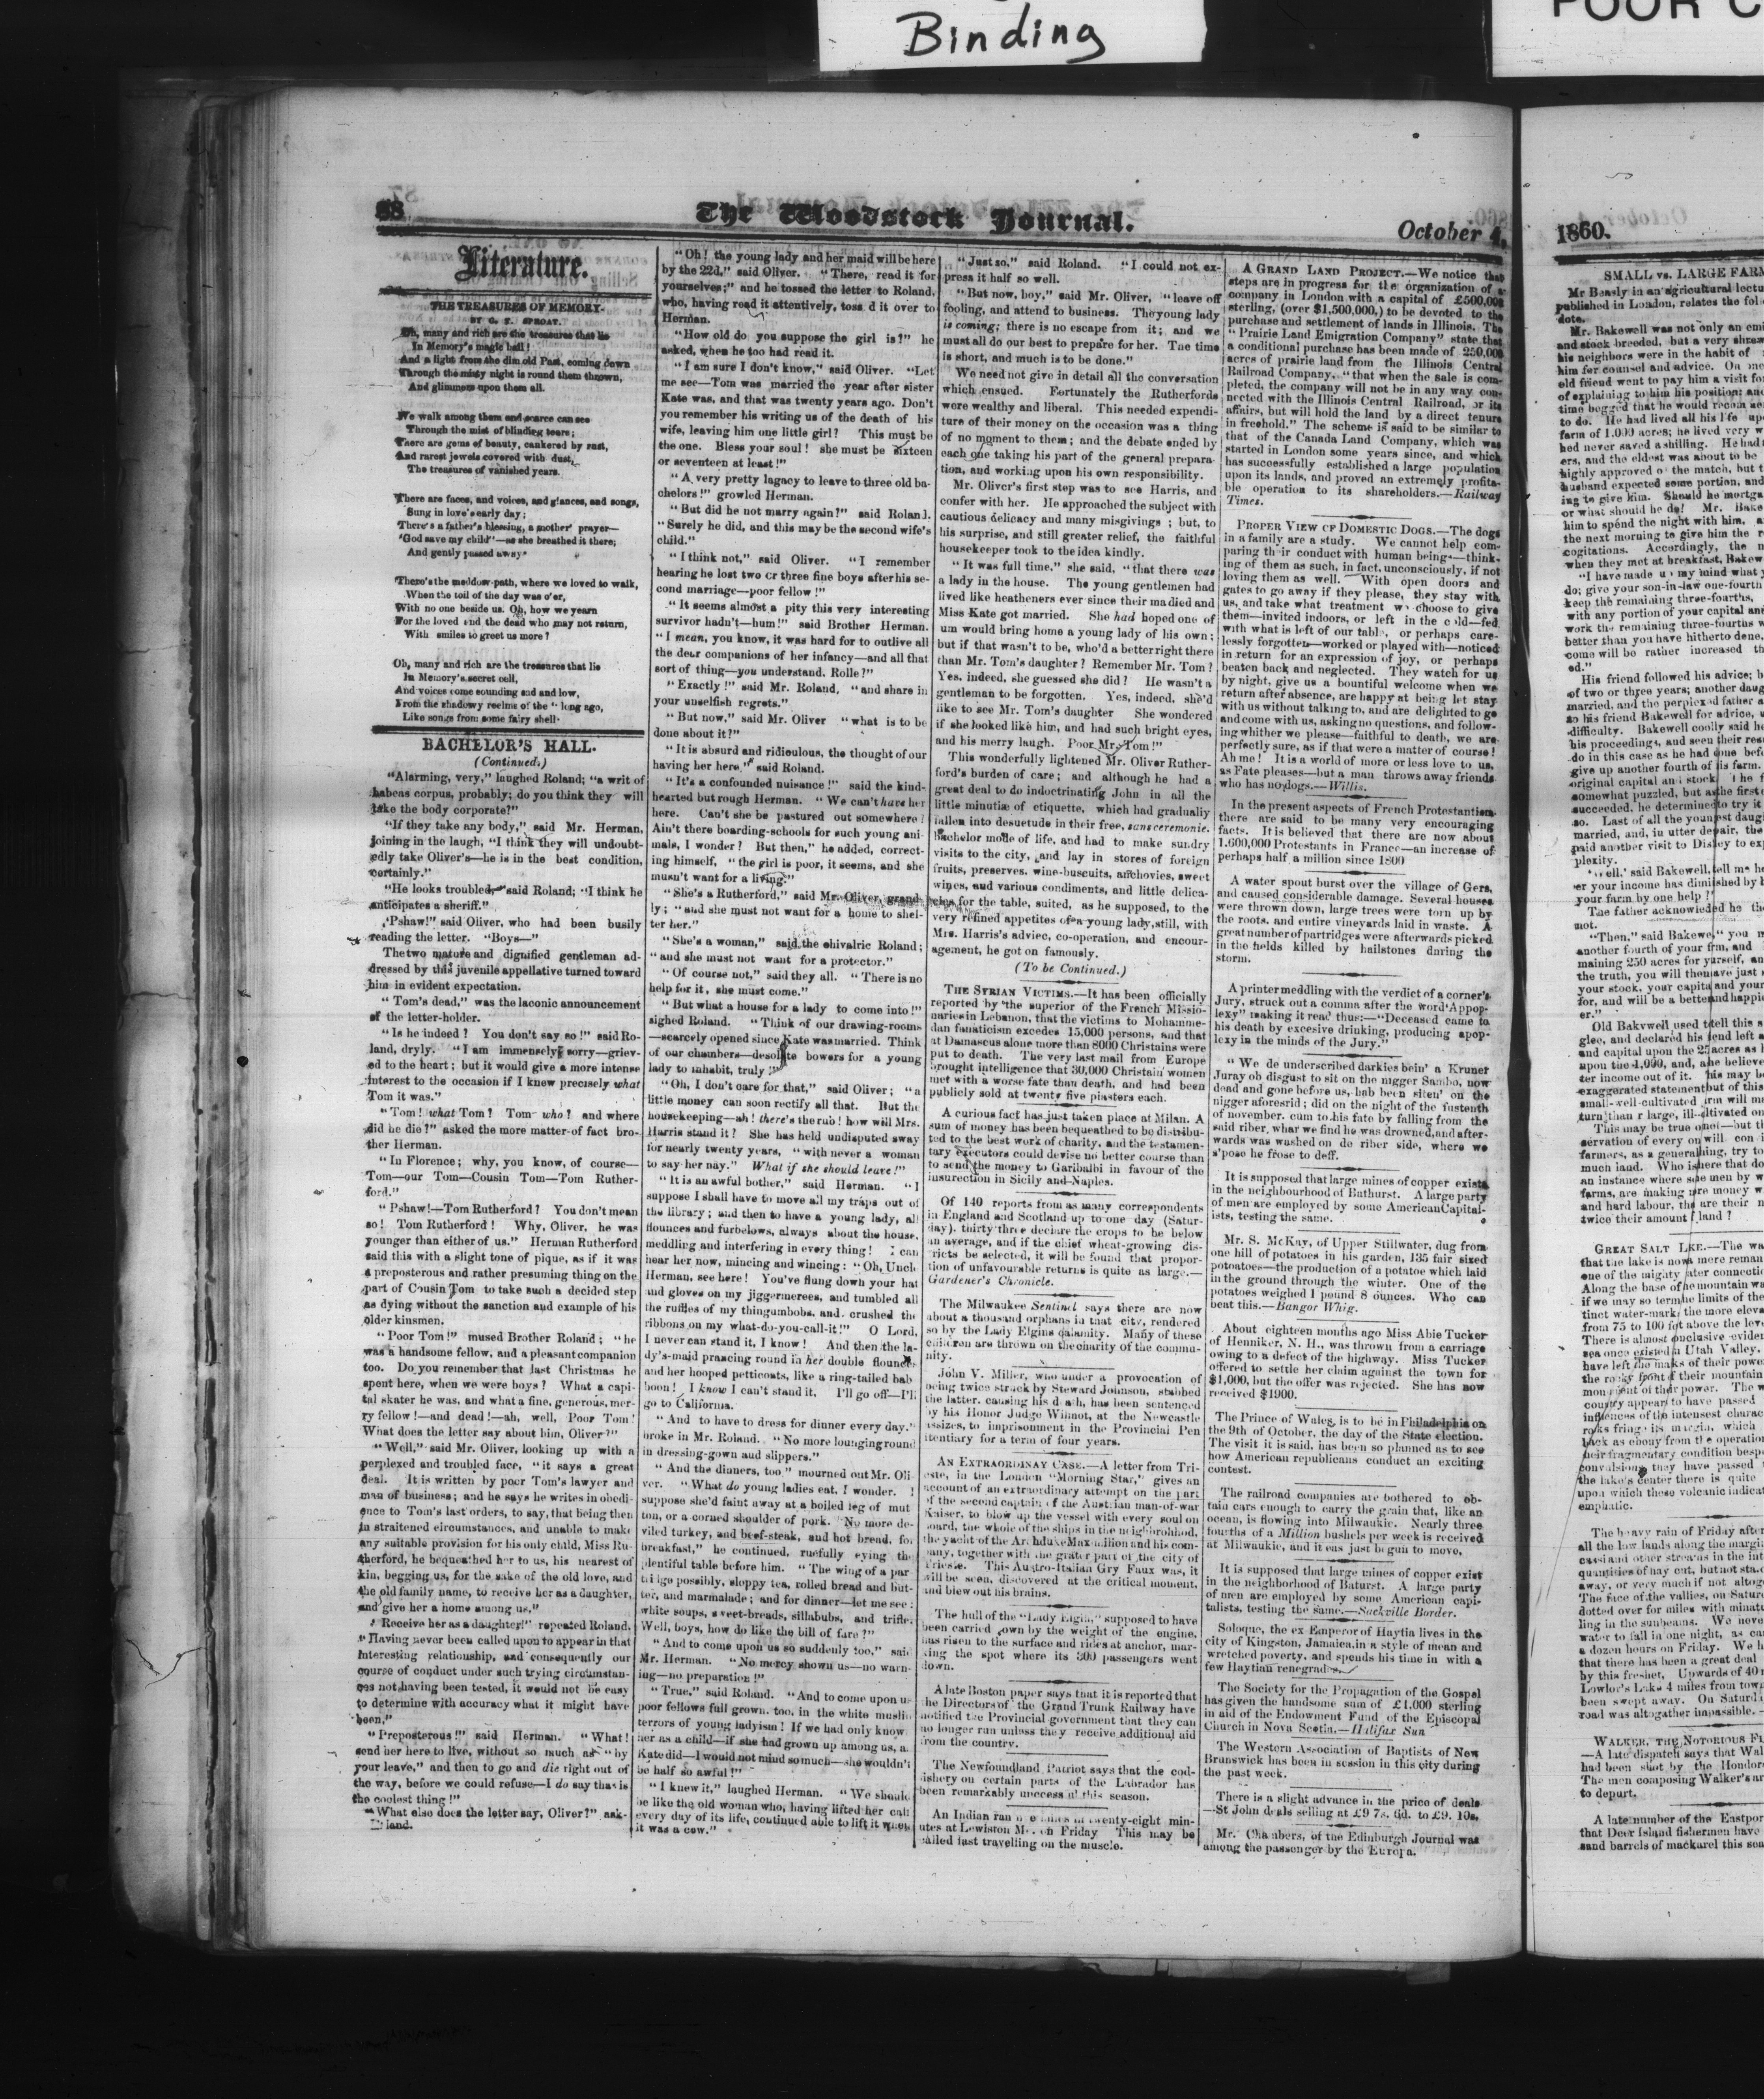 Binding
POOR C
88
The Woodstock Journal.
October 4,
Literature.
THE TREASURES OF MEMORY.
BY G. F. SPROAT.
Oh, many and rich are the treasures that lie
In Memory's magic hall!
And a light from the dim old Past, coming down
Through the misty night is round them thrown,
And glimmers upon them all.
We walk among them and scarce can see
Through the mist of blinding tears;
There are gems of beauty, cankered by rust,
And rarest jewels covered with dust,
The treasures of vanished years.
There are faces, and voices, and glances, and songs,
Sung in love's early day;
There's a father's blessing, a mother' prayer—
'God save my child"—as she breathed it there;
And gently passed away.
There's the meddow-path, where we loved to walk,
When the toil of the day was o'er,
With no one beside us. Oh, how we yearn
For the loved and the dead who may not return,
With smiles to greet us more?
Oh, many and rich are the treasures that lie
In Memory's secret cell,
And voices come sounding sad and low,
From the shadowy reelms of the " long ago,
Like songs from some fairy shell.
BACHELOR'S HALL.
(Continued.)
"Alarming, very," laughed Roland; "a writ of
habeas corpus, probably; do you think they will
take the body corporate?"
"If they take any body," said Mr. Herman,
joining in the laugh, "I think they will undoubt-
edly take Oliver's—he is in the best condition,
certainly."
"He looks troubled," said Roland; "I think he
anticipates a sheriff."
'Pshaw!" said Oliver, who had been busily
reading the letter. "Boys—"
The two mature and dignified gentleman ad-
dressed by this juvenile appellative turned toward
him in evident expectation.
"Tom's dead," was the laconic announcement
of the letter-holder.
"Is he indeed? You don't say so!" said Ro-
land, dryly. "I am immensely sorry—griev-
ed to the heart; but it would give a more intense
interest to the occasion if I knew precisely what
Tom it was."
"Tom! what Tom? Tom who? and where
did he die?" asked the more matter-of fact bro-
ther Herman.
"In Florence; why, you know, of course—
Tom—our Tom—Cousin Tom—Tom Ruther-
ford."
"Pshaw!—Tom Rutherford? You don't mean
so! Tom Rutherford! Why, Oliver, he was
younger than either of us." Herman Rutherford
said this with a slight tone of pique, as if it was
a preposterous and rather presuming thing on the
part of Cousin Tom to take such a decided step
as dying without the sanction and example of his
older kinsmen.
"Poor Tom!" mused Brother Roland; "he
was a handsome fellow, and a pleasant companion
too. Do you remember that last Christmas he
spent here, when we were boys? What a capi-
tal skater he was, and what a fine, generous, mer-
ry fellow!—and dead!—ah, well, Poor Tom!
What does the letter say about him, Oliver?"
"Well," said Mr. Oliver, looking up with a
perplexed and troubled face, "it says a great
deal. It is written by poor Tom's lawyer and
man of business; and he says he writes in obedi-
ence to Tom's last orders, to say, that being then
in straitened circumstances, and unable to make
any suitable provision for his only child, Miss Ru-
therford, he bequeathed her to us, his nearest of
kin, begging us, for the sake of the old love, and
the old family name, to receive her as a daughter,
and give her a home among us."
"Receive her as a daughter!" repeated Roland.
"Having never been called upon to appear in that
interesting relationship, and consequently our
course of conduct under such trying circumstan-
ces not having been tested, it would not be easy
to determine with accuracy what it might have
been."
"Preposterous!" said Herman. "What!
send her here to live, without so much as "by
your leave," and then to go and die right out of
the way, before we could refuse—I do say that is
the coolest thing!"
"What else does the letter say, Oliver?" ask-
land.
"Oh! the young lady and her maid will be here
by the 22d," said Oliver. "There, read it for
yourselves;" and he tossed the letter to Roland,
who, having read it attentively, toss d it over to
Herman.
"How old do you suppose the girl is?" he
asked, when he too had read it.
"I am sure I don't know," said Oliver. "Let
me see—Tom was married the year after sister
Kate was, and that was twenty years ago. Don't
you remember his writing us of the death of his
wife, leaving him one little girl? This must be
the one. Bless your soul! she must be sixteen
or seventeen at least!"
"A very pretty lagacy to leave to three old ba-
chelors!" growled Herman.
"But did he not marry again?" said Roland.
"Surely he did, and this may be the second wife's
child."
"I think not," said Oliver. "I remember
hearing he lost two or three fine boys after his se-
cond marriage—poor fellow!"
"It seems almost a pity this very interesting
survivor hadn't—hum!" said Brother Herman.
"I mean, you know, it was hard for to outlive all
the dear companions of her infancy—and all that
sort of thing—you understand, Rolle?"
"Exactly!" said Mr. Roland, "and share in
your unselfish regrets."
"But now," said Mr. Oliver "what is to be
done about it?"
"It is absurd and ridiculous, the thought of our
having her here," said Roland.
"It's a confounded nuisance!" said the kind-
hearted but rough Herman. "We can't have her
here. Can't she be pastured out somewhere?
Ain't there boarding-schools for such young ani-
mals, I wonder? But then," he added, correct-
ing himself, "the girl is poor, it seems, and she
musn't want for a living."
"She's a Rutherford," said Mr. Oliver, grand-
ly; "and she must not want for a home to shel-
ter her."
"She's a woman," said the chivalric Roland;
"and she must not want for a protector."
"Of course not," said they all. "There is no
help for it, she must come."
"But what a house for a lady to come into!"
sighed Roland. "Think of our drawing-rooms
—scarcely opened since Kate was married. Think
of our chambers—desolate bowers for a young
lady to inhabit, truly!"
"Oh, I don't care for that," said Oliver; "a
little money can soon rectify all that. But the
housekeeping—ah! there's the rub! how will Mrs.
Harris stand it? She has held undisputed sway
for nearly twenty years, "with never a woman
to say her nay." What if she should leave!"
"It is an awful bother," said Herman. "I
suppose I shall have to move all my traps out of
the library; and then to have a young lady, all
flounces and furbelows, always about the house,
meddling and interfering in every thing! I can
hear her now, mincing and wincing: "Oh, Uncle
Herman, see here! You've flung down your hat
and gloves on my jiggermerees, and tumbled all
the ruffles of my thingumbobs, and crushed the
ribbons on my what-do-you-call-it!" O Lord,
I never can stand it, I know! And then the la-
dy's-maid prancing round in her double flounces
and her hooped petticoats, like a ring-tailed bab
boon! I know I can't stand it. I'll go off—I'll
go to California.
"And to have to dress for dinner every day."
broke in Mr. Roland. "No more lounging round
in dressing-gown and slippers."
"And the dinners, too," mourned out Mr. Oli-
ver. "What do young ladies eat, I wonder. I
suppose she'd faint away at a boiled leg of mut
ton, or a corned shoulder of pork. No more de-
viled turkey, and beef-steak, and hot bread, for
breakfast," he continued, ruefully eying the
plentiful table before him. "The wing of a par
tridge possibly, sloppy tea, rolled bread and but-
ter, and marmalade; and for dinner—let me see:
white soups, sweet-breads, sillabubs, and trifle.
Well, boys, how do like the bill of fare?"
"And to come upon us so suddenly too," said
Mr. Herman. "No mercy shown us—no warn-
ing—no preparation!"
"True," said Roland. "And to come upon us
poor fellows full grown, too, in the white muslin
terrors of young ladyism! If we had only know
her as a child—if she had grown up among us, as
Kate did—I would not mind so much—she wouldn't
be half so awful!"
"I knew it," laughed Herman. "We should
be like the old woman who, having lifted her calf
every day of its life, continued able to lift it when
it was a cow."
"Just so," said Roland. "I could not ex-
press it half so well.
"But now, boy," said Mr. Oliver, "leave off
fooling, and attend to business. The young lady
is coming; there is no escape from it; and we
must all do our best to prepare for her. The time
is short, and much is to be done."
We need not give in detail all the conversation
which ensued. Fortunately the Rutherfords
were wealthy and liberal. This needed expendi-
ture of their money on the occasion was a thing
of no moment to them; and the debate ended by
each one taking his part of the general prepara-
tion, and working upon his own responsibility.
Mr. Oliver's first step was to see Harris, and
confer with her. He approached the subject with
cautious delicacy and many misgivings; but, to
his surprise, and still greater relief, the faithful
housekeeper took to the idea kindly.
"It was full time," she said, "that there was
a lady in the house. The young gentlemen had
lived like heatheners ever since their ma died and
Miss Kate got married. She had hoped one of
um would bring home a young lady of his own;
but if that wasn't to be, who'd a better right there
than Mr. Tom's daughter? Remember Mr. Tom?
Yes, indeed, she guessed she did? He wasn't a
gentleman to be forgotten. Yes, indeed, she'd
like to see Mr. Tom's daughter She wondered
if she looked like him, and had such bright eyes,
and his merry laugh. Poor Mr. Tom!"
This wonderfully lightened Mr. Oliver Ruther-
ford's burden of care; and although he had a
great deal to do indoctrinating John in all the
little minutiæ of etiquette, which had gradually
fallen into desuetude in their free, sans ceremonie,
bachelor mode of life, and had to make sundry
visits to the city, and lay in stores of foreign
fruits, preserves, wine-buscuits, anchovies, sweet
wines, and various condiments, and little delica-
cies for the table, suited, as he supposed, to the
very refined appetites of a young lady, still, with
Mrs. Harris's adviec, co-operation, and encour-
agement, he got on famously.
(To be Continued.)
THE SYRIAN VICTIMS.—It has been officially
reported by the superior of the French Missio-
naries in Lebanon, that the victims to Mohamme-
dan fanaticism excedes 15,000 persons, and that
at Damascus alone more than 8000 Christains were
put to death. The very last mail from Europe
brought intelligence that 30,000 Christain women
met with a worse fate than death, and had been
publicly sold at twenty five piasters each.
A curious fact has just taken place at Milan. A
sum of money has been bequeathed to be distribu-
ted to the best work of charity, and the testamen-
tary executors could devise no better course than
to send the money to Garibalbi in favour of the
insurection in Sicily and Naples.
Of 140 reports from as many correspondents
in England and Scotland up to one day (Satur-
day), thirty three declare the crops to be below
an average, and if the chief wheat-growing dis-
tricts be selected, it will be found that propor-
tion of unfavourable returns is quite as large.—
Gardener's Chronicle.
The Milwaukee Sentinel says there are now
about a thousand orphans in that city, rendered
so by the Lady Elgins calamity. Many of these
children are thrown on the charity of the commu-
nity.
John V. Miller, who under a provocation of
being twice struck by Steward Johnson, stabbed
the latter, causing his death, has been sentenced
by his Honor Judge Wilmot, at the Newcastle
assizes, to imprisonment in the Provincial Pen
itentiary for a term of four years.
AN EXTRAORDINAY CASE.—A letter from Tri-
este, in the London "Morning Star," gives an
account of an extraordinary attempt on the part
of the second captain of the Austrian man-of-war
Kaiser, to blow up the vessel with every soul on
board, the whole of the ships in the neighborohhod,
the yacht of the Archduke Maxmilion and his com-
pany, together with the grater part of the city of
Trieste. This Austro-Italian Gry Faux was, it
will be seen, discovered at the critical moment,
and blew out his brains.
The hull of the "Lady Elgin," supposed to have
been carried down by the weight of the engine,
has risen to the surface and rides at anchor, mar-
king the spot where its 300 passengers went
down.
A late Boston paper says that it is reported that
the Directors of the Grand Trunk Railway have
notified the Provincial government that they can
no longer run unless they receive additional aid
from the country.
The Newfoundland Patriot says that the cod-
fishery on certain parts of the Labrador has
been remarkably uccess ul this season.
An Indian ran miles in twenty-eight min-
utes at Lewiston Me. on Friday This may be
called fast travelling on the muscle.
A GRAND LAND PROJECT.—We notice that
steps are in progress for the organization of a
company in London with a capital of £500,000
sterling, (over $1,500,000,) to be devoted to the
purchase and settlement of lands in Illinois. The
"Prairie Land Emigration Company" state that
a conditional purchase has been made of 250,000
acres of prairie land from the Illinois Central
Railroad Company, "that when the sale is com-
pleted, the company will not be in any way con-
nected with the Illinois Central Railroad, or its
affairs, but will hold the land by a direct tenure
in freehold." The scheme is said to be similar to
that of the Canada Land Company, which was
started in London some years since, and which
has successfully established a large population
upon its lands, and proved an extremely profita-
ble operation to its shareholders.—Railway
Times.
PROPER VIEW OF DOMESTIC DOGS.—The dogs
in a family are a study. We cannot help com-
paring their conduct with human beings—think-
ing of them as such, in fact, unconsciously, if not
loving them as well. With open doors and
gates to go away if they please, they stay with
us, and take what treatment we choose to give
them—invited indoors, or left in the cold—fed
with what is left of our table, or perhaps care-
lessly forgotten—worked or played with—noticed
in return for an expression of joy, or perhaps
beaten back and neglected. They watch for us
by night, give us a bountiful welcome when we
return after absence, are happy at being let stay
with us without talking to, and are delighted to go
and come with us, asking no questions, and follow-
ing whither we please—faithful to death, we are
perfectly sure, as if that were a matter of course!
Ah me! It is a world of more or less love to us,
as Fate pleases—but a man throws away friends
who has no dogs.—Willis.
In the present aspects of French Protestantism
there are said to be many very encouraging
facts. It is believed that there are now about
1,600,000 Protestants in France—an increase of
perhaps half a million since 1800
A water spout burst over the village of Gers,
and caused considerable damage. Several houses
were thrown down, large trees were torn up by
the roots, and entire vineyards laid in waste. A
great number of partridges were afterwards picked
in the fields killed by hailstones during the
storm.
A printer meddling with the verdict of a corner's
Jury, struck out a comma after the word 'Appop-
lexy" making it read thus:—"Deceased came to
his death by excesive drinking, producing apop-
lexy in the minds of the Jury."
"We de underscribed darkies bein' a Kruner
Juray ob disgust to sit on the nigger Sambo, now
dead and gone before us, hab been siten' on the
nigger aforesrid; did on the night of the fustenth
of november. cum to his fate by falling from the
said riber, whar we find he was drowned, and after-
wards was washed on de riber side, where we
s'pose he frose to deff.
It is supposed that large mines of copper exists
in the neighbourhood of Bathurst. A large party
of men are employed by some American Capital-
ists, testing the same.
Mr. S. McKay, of Upper Stillwater, dug from
one hill of potatoes in his garden, 135 fair sized
potoatoes—the production of a potatoe which laid
in the ground through the winter. One of the
potatoes weighed 1 pound 8 ounces. Who can
beat this.—Bangor Whig.
About eighteen months ago Miss Abie Tucker
of Henniker, N. H., was thrown from a carriage
owing to a defect of the highway. Miss Tucker
offered to settle her claim against the town for
$1,000, but the offer was rejected. She has now
received $1900.
The Prince of Wales, is to be in Philadelphia on
the 9th of October, the day of the State election.
The visit it is said, has been so planned as to see
how American republicans conduct an exciting
contest.
The railroad companies are bothered to ob-
tain cars enough to carry the grain that, like an
ocean, is flowing into Milwaukie. Nearly three
fourths of a Million bushels per week is received
at Milwaukie, and it eas just begun to move.
It is supposed that large mines of copper exist
in the neighborhood of Baturst. A large party
of men are employed by some American capi-
talists, testing the same.—Sackville Border.
Soloque, the ex Emperor of Haytia lives in the
city of Kingston, Jamaica, in a style of mean and
wretched poverty, and spends his time in with a
few Haytian renegrades.
The Society for the Propagation of the Gospel
has given the handsome sum of £1,000 sterling
in aid of the Endowment Fund of the Episcopal
Church in Nova Scotia.—Halifax Sun
The Western Association of Baptists of New
Brunswick has been in session in this city during
the past week.
There is a slight advance in the price of deals
—St John deals selling at £9 7s. 6d. to £9. 10s.
Mr. Chambers, of the Edinburgh Journal was
among the passenger by the Europa.
1860.
SMALL vs. LARGE FARM
Mr Beasly in an agricultural lectu
published in London, relates the fol
dote.
Mr. Bakewell was not only an emi
and stock breeded, but a very shrew
his neighbors were in the habit of
him for counsel and advice. On one
old friend went to pay him a visit fo
of explaining to him his position; and
time begged that he would recom
to do. He had lived all his life upo
farm of 1,000 acres; he lived very w
had never saved a shilling. He had
ers, and the eldest was about to be
highly approved of the match, but t
husband expected some portion, and
ing to give him. Should he mortga
or what should he do! Mr. Bake
him to spend the night with him, a
the next morning to give him the r
cogitations. Accordingly, the n
when they met at breakfast, Bakew
"I have made up my mind what y
do; give your son-in-law one-fourth
keep the remaining three-fourths,
with any portion of your capital and
work the remaining three-fourths w
better than you have hitherto done.
come will be rather increased th
ed."
His friend followed his advice; b
of two or three years; another daug
married, and the perplexed father a
to his friend Bakewell for advice, u
difficulty. Bakewell coolly said he
his proceedings, and seen their resu
do in this case as he had done befo
give up another fourth of his farm.
original capital and stock. The f
somewhat puzzled, but as the first e
succeeded, he determined to try it
so. Last of all the youngest daugh
married, and, in utter depair, the
paid another visit to Disley to ex
plexity.
'Well,' said Bakewell, tell me he
er your income has diminished by h
your farm by one help?'
The father acknowledged he th
not.
"Then," said Bakewe " you m
another fourth of your frm, and
maining 250 acres for yarself, an
the truth, you will then ave just
your stock, your capita and your
for, and will be a better nd happi
er."
GREAT SALT LKE.—The wa
that the lake is now mere reman
one of the mighty ater connectio
Along the base of he mountain wa
WALKER, THE NOTORIOUS FI
—A late dispatch says that Wal
had been shot by the Hondor
The men composing Walker's ar
to depart.
A late number of the Eastpor
that Deer Island fishermen have
sand barrels of mackarel this sea